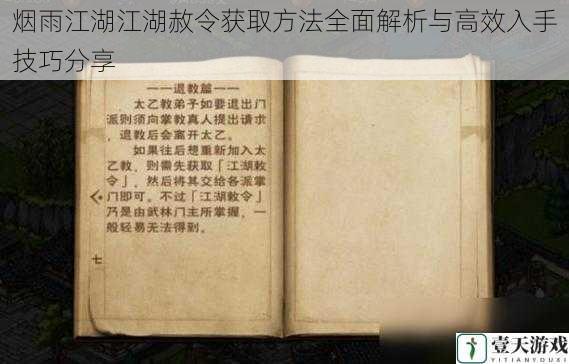 烟雨江湖江湖赦令获取方法全面解析与高效入手
技巧分享
——退教篇——
太乙教弟子如要退出门
派则须向掌教真人提出请求
，退教后会离开太乙。
如果往后想重新加入太
乙教，则需先获取「江湖敕
令」，然后将其交给各派掌
门即可。不过「江湖敕令」
乃是由武林门主所掌握，一
般轻易无法得到。
七
壹天游戏
YITIANYOUXI